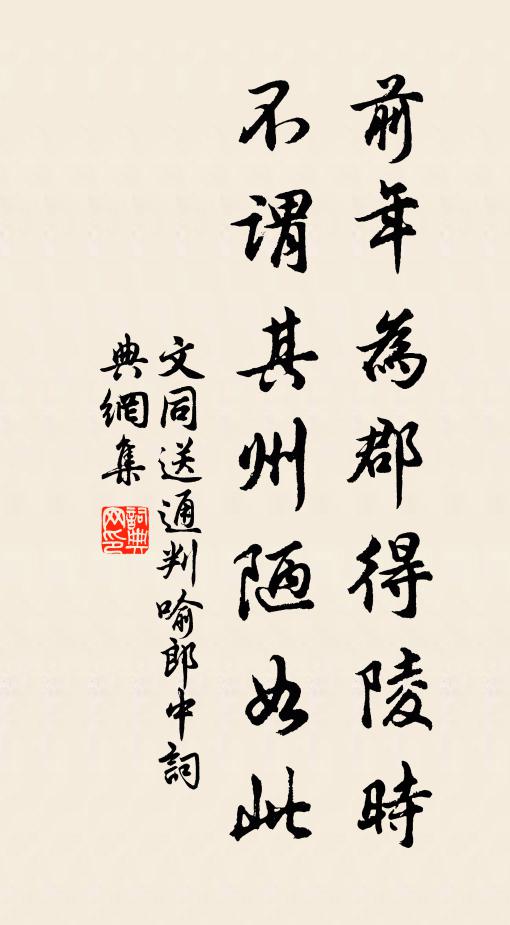 前年為郡得陵時
不謂其州陋如此
文同送通判喻郎中詞
典網集
詞典
网印